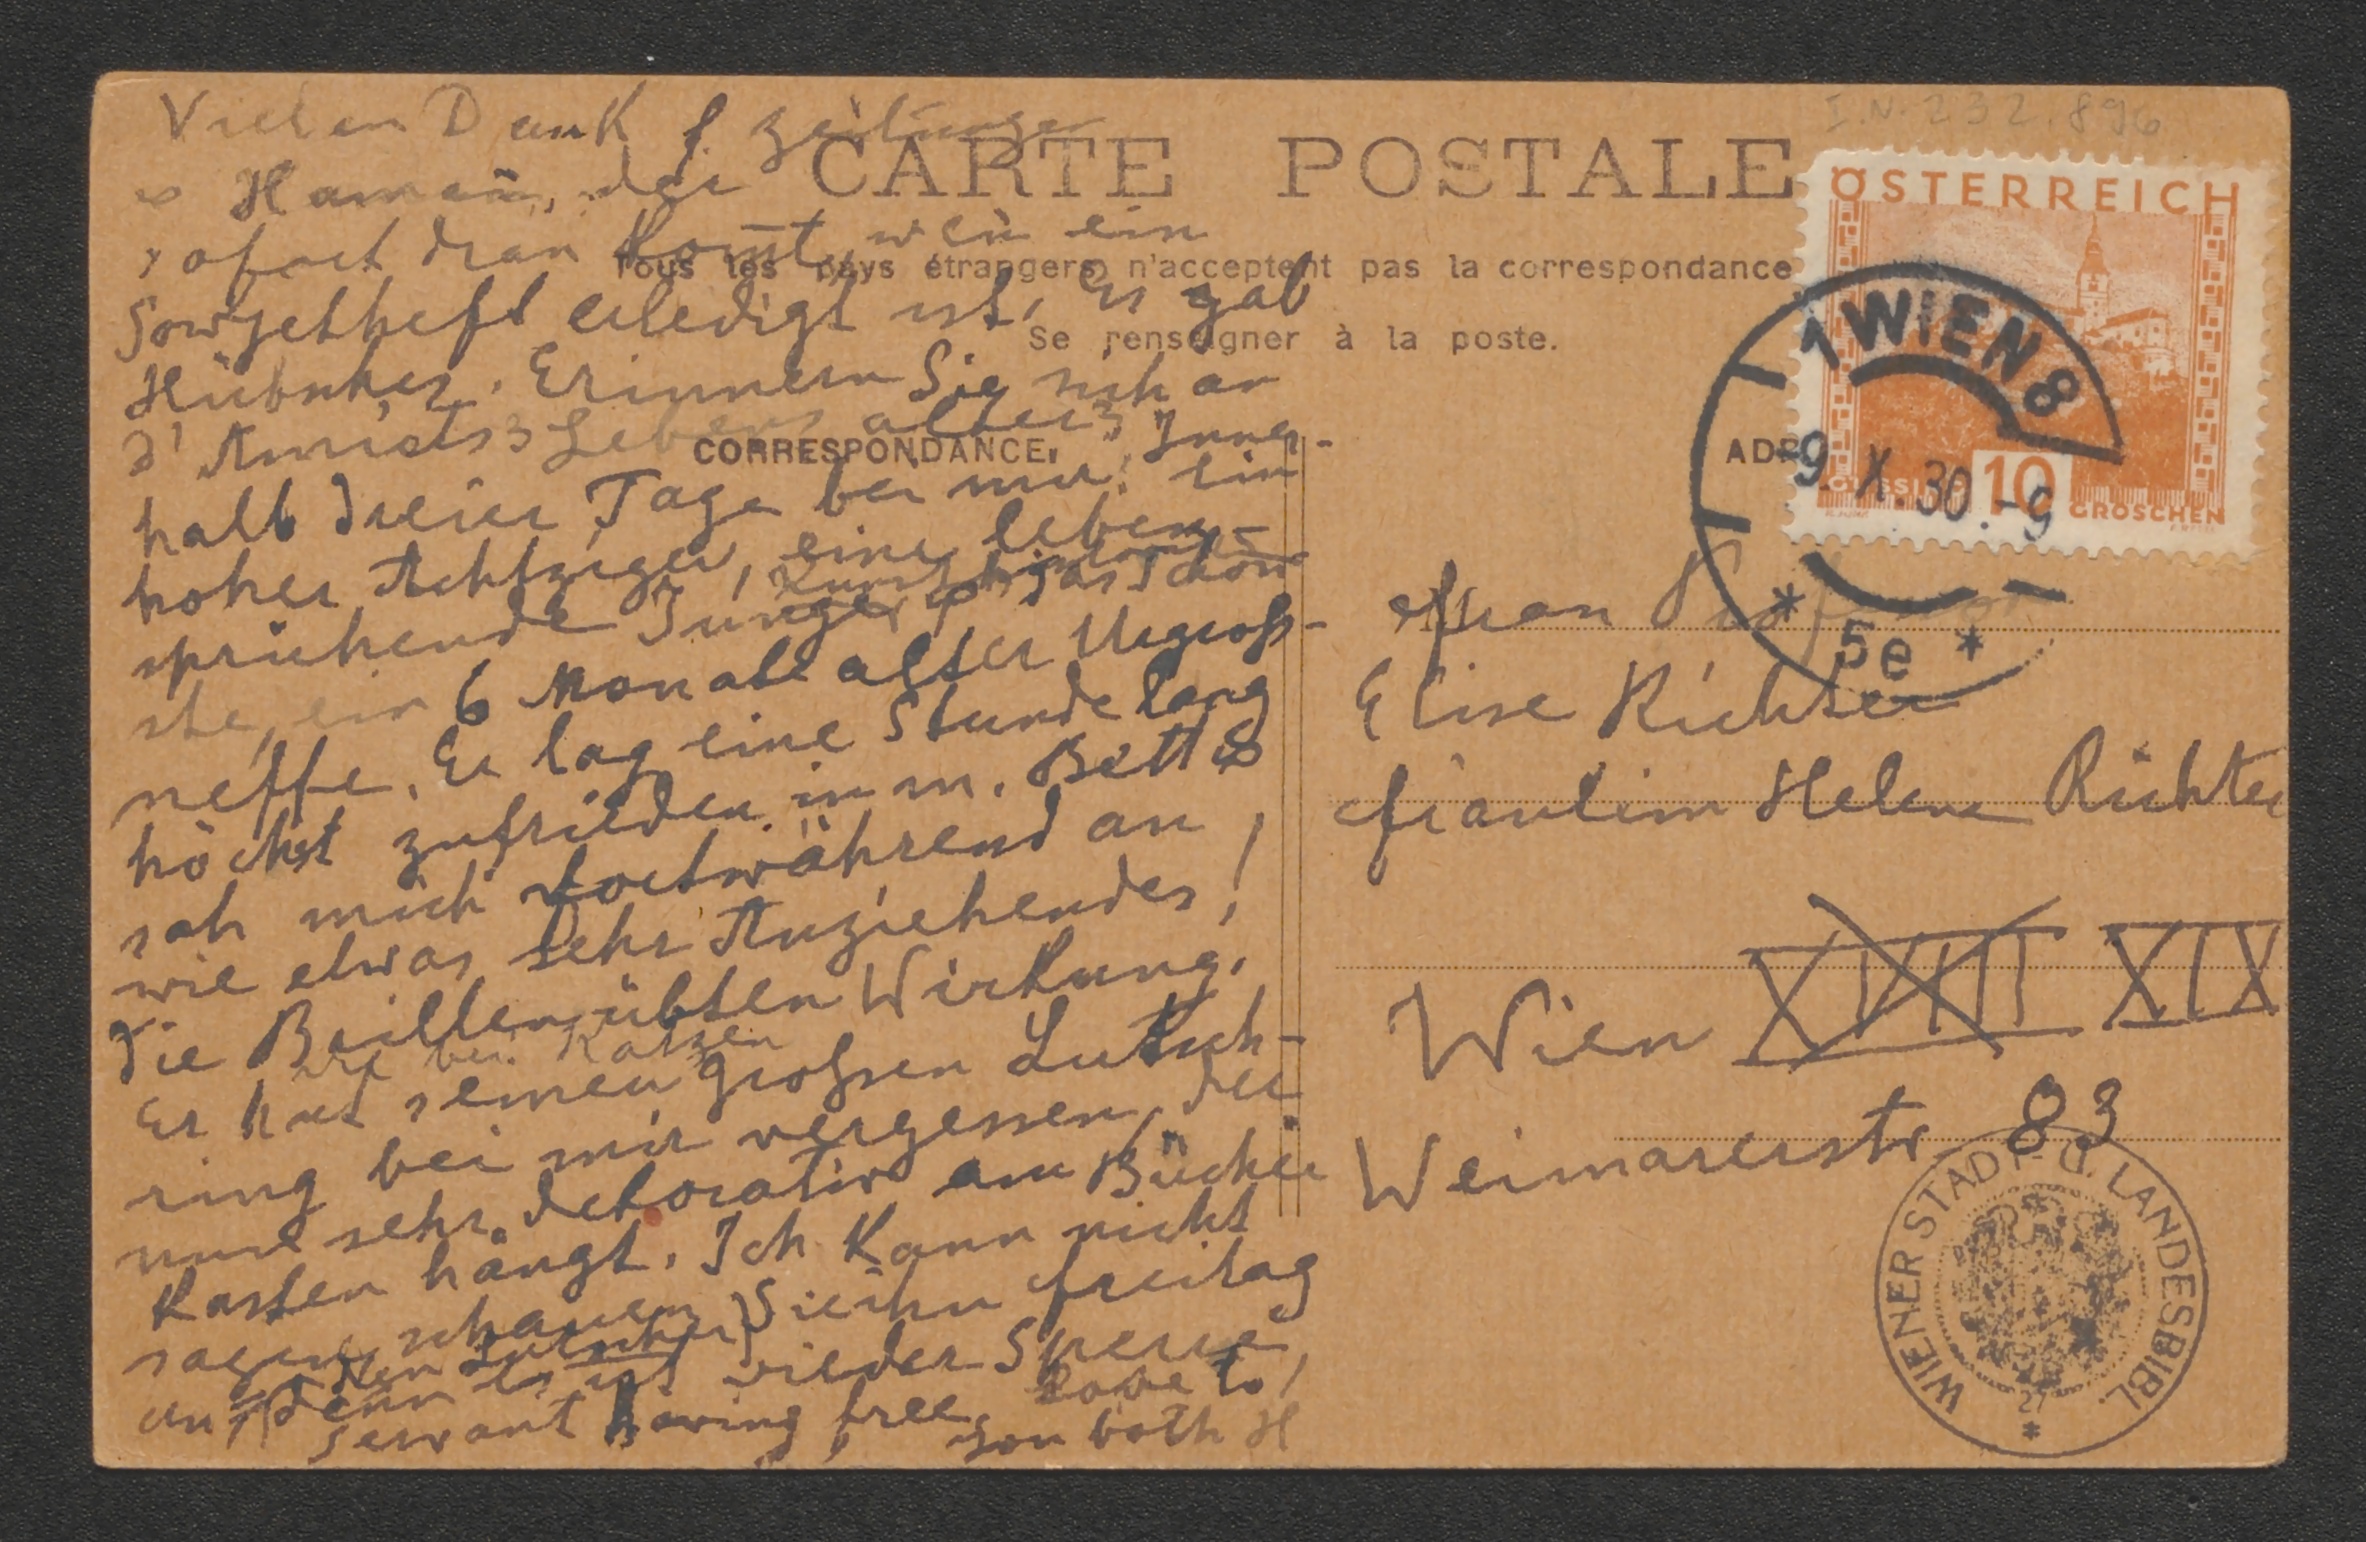 I.N. 232.896
Vielen Dank f. Zeitunge
CARTE POSTALE
Haman̄, der
sofort dran kom̄t, wen̄ ein
Tous les pays étrangers n'acceptent pas la correspondance
Sowjetheft erledigt ist. Es gab
Se renseigner à la poste.
Erinnern Sie sich an
d'Amicis Lebensalter? Inner-
CORRESPONDANCE
halb dreier Tage bei mir: ein
hoher Achtziger, eine leben-
sprühende Junge, das Schön
ste, ein 6 Monate alter Urgroß-
neffe. Er lag eine Stunde lang
höchst zufrieden in m. Bett &
sah mich fortwährend an,
wie etwas sehr Anziehendes!
Die Brillen übten Wirkung.
wie bei Katzen
Er hat seinen großen Lutsch-
ring bei mir vergessen, der
nun sehr dekorativ am Bücher
Kasten hängt. Ich kann nicht
sagen, schauen Sie ihn Freitag
an, denn es ist wieder Sperre,
den Lutscher
servant having free. Love to
you both H
ÖSTERREICH
GÜSSING 10 GROSCHEN
1 WIEN 8
9. X. 30.-9
* 5e *
Frau Professor
Elise Richter
Fräulein Helene Richter
Wien XVIII XIX
Weimarerstr. 83
WIENER STADT- U. LANDESBIBL.
27
*